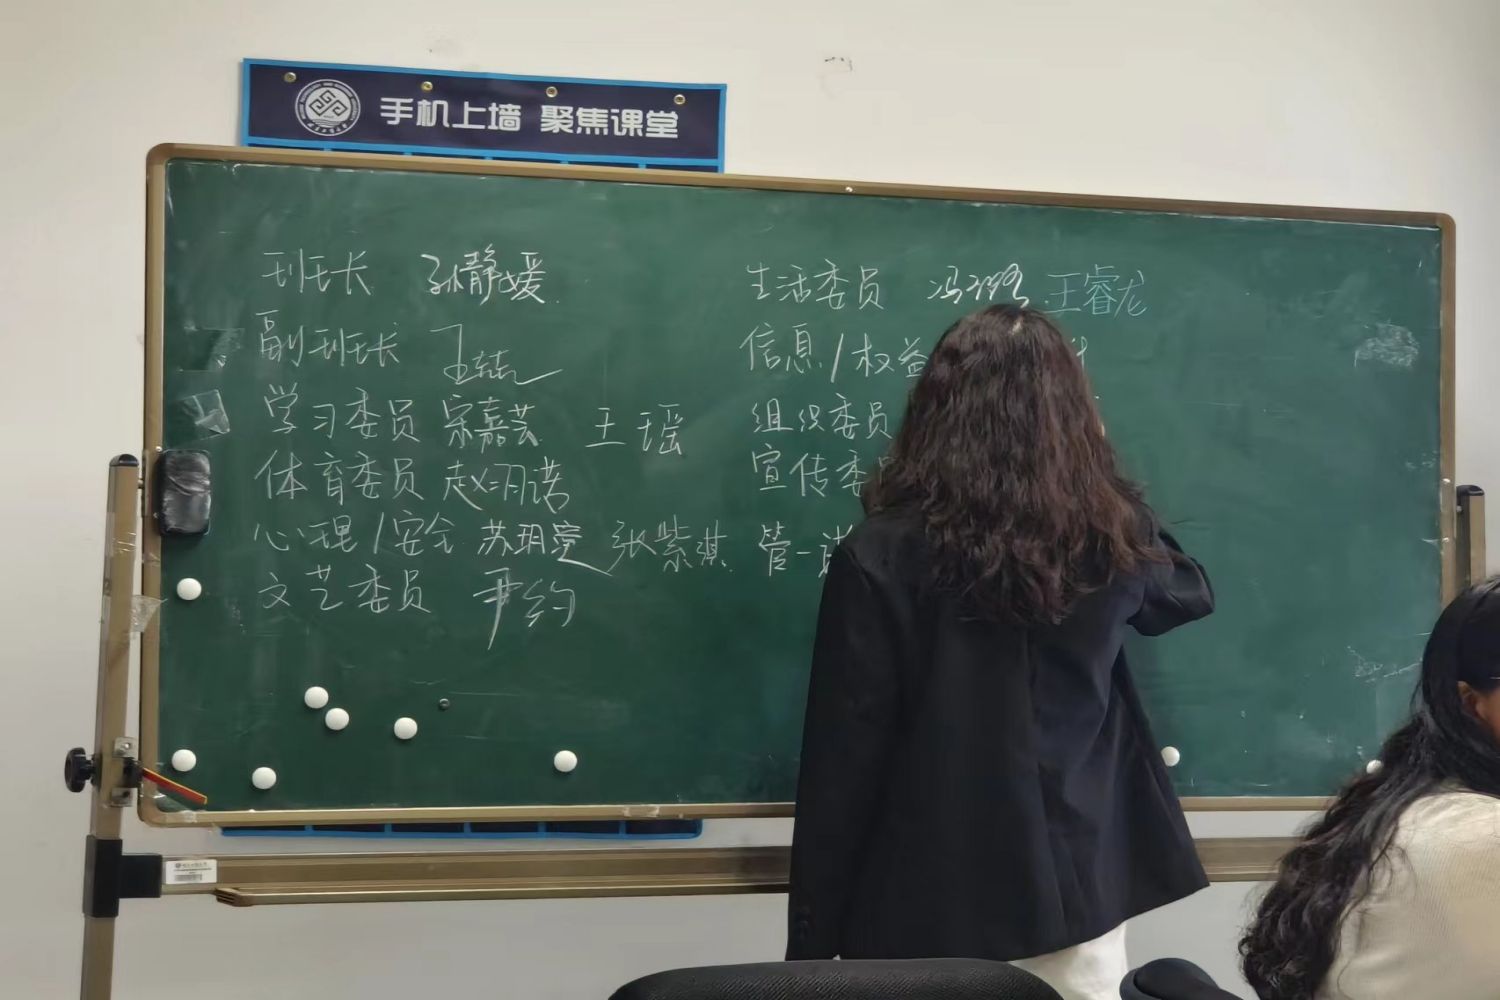 手机上墙 聚焦课堂
班长 孙静媛
副班长 王喆
学习委员 宗嘉芸 王瑶
体育委员 赵羽诺
心理/安全 苏玥莹 张紫淇 管一
文艺委员 尹约
生活委员 冯璐 王睿龙
信息/权益
组织委员
宣传委员